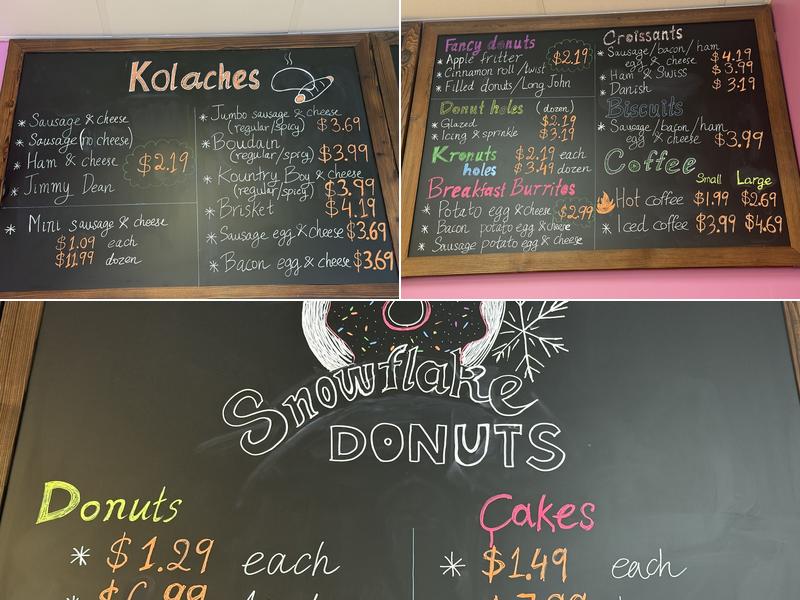 Kolaches
* Sausage & cheese
* Sausage (no cheese)
* Ham & cheese
* Jimmy Dean
$2.19
* Mini sausage & cheese
$1.09 each
$11.99 dozen
* Jumbo sausage & cheese
(regular/spicy) $3.69
* Boudain
(regular/spicy) $3.99
* Kountry Boy & cheese
(regular/spicy) $3.99
* Brisket $4.19
* Sausage egg & cheese $3.69
* Bacon egg & cheese $3.69
Fancy donuts
* Apple fritter
* Cinnamon roll/twist
* Filled donuts/Long John
$2.19
Donut holes (dozen)
* Glazed $2.19
* Icing & sprinkle $3.19
Kronuts $2.19 each
holes $3.49 dozen
Breakfast Burritos
* Potato egg & cheese $2.99
* Bacon potato egg & cheese
* Sausage potato egg & cheese
Croissants
* Sausage/bacon/ham
egg & cheese $4.19
* Ham & Swiss $3.99
* Danish $3.19
Biscuits
* Sausage/bacon/ham
egg & cheese $3.99
Coffee
Small Large
Hot coffee $1.99 $2.69
* Iced coffee $3.99 $4.69
Snowflake
DONUTS
Donuts
* $1.29 each
Cakes
* $1.49 each